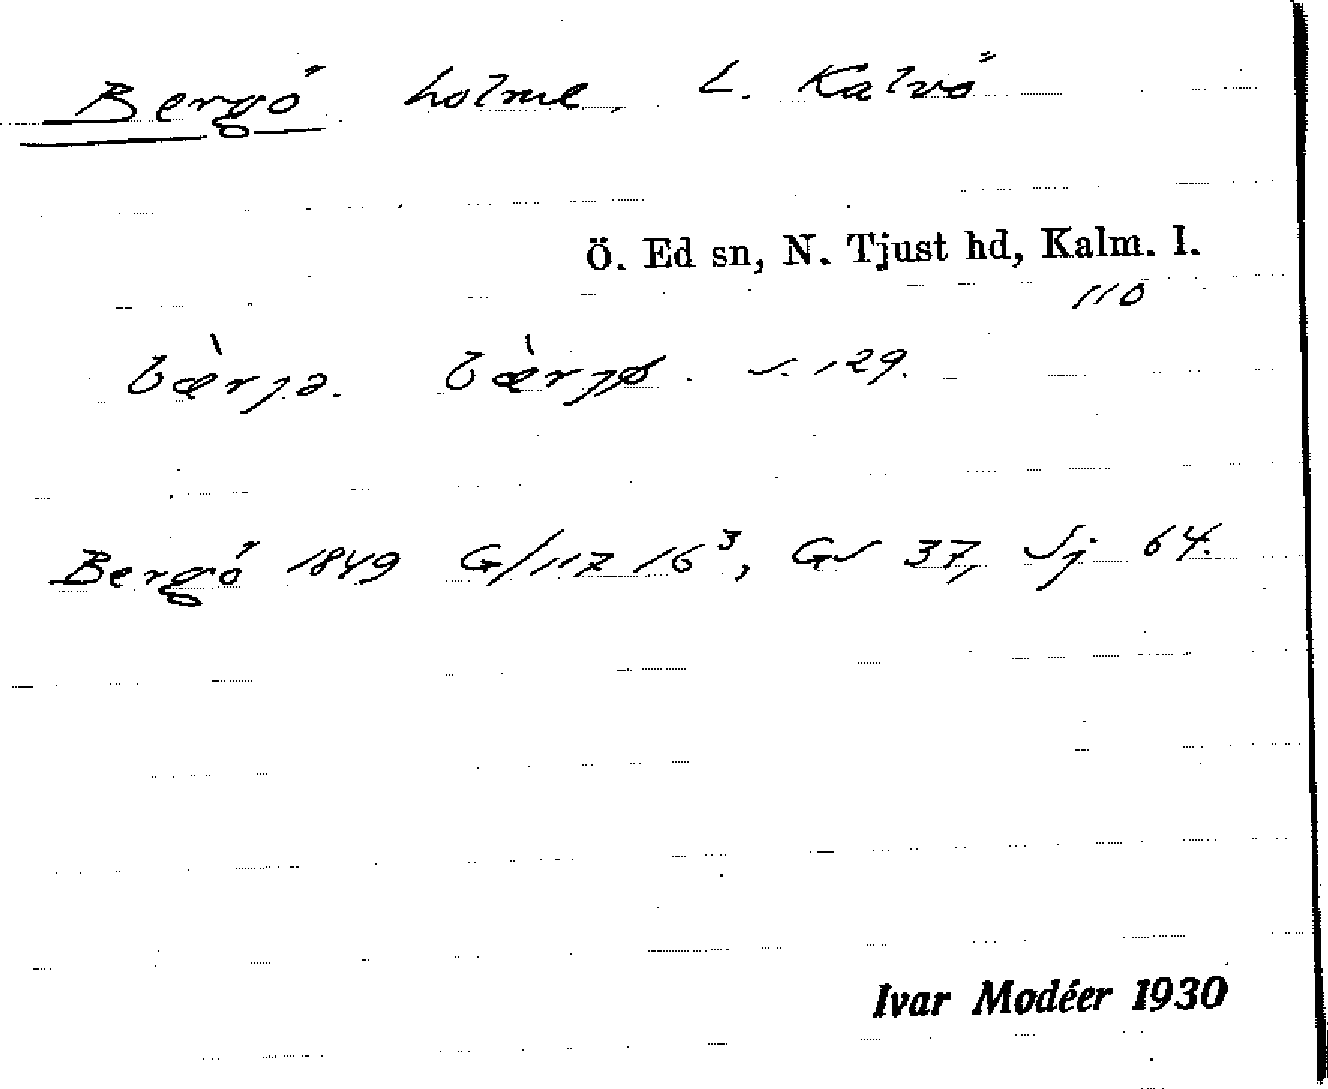 Bergö holme, L. Kalvö
Ö. Ed sn, N. Tjust hd, Kalm. l.
110
bæ̀rjə. bæ̀rjø. s. 129.
Bergö 1849 G/117 16³, Gs 37, Sj 64.
Ivar Modéer 1930